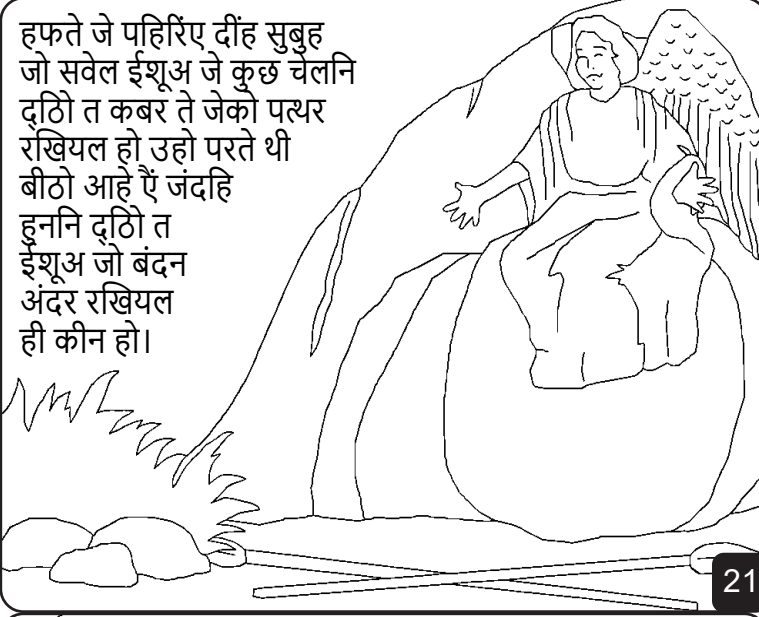 हफते जे पहिरिंए दींह सुबुह
जो सवेल ईशूअ जे कुछ चेलनि
द्ठिो त कबर ते जेको पत्थर
रखियल हो उहो परते थी
बीठो आहे ऐं जंदहि
हुननि द्ठिो त
ईशूअ जो बंदन
अंदर रखियल
ही कीन हो।
21